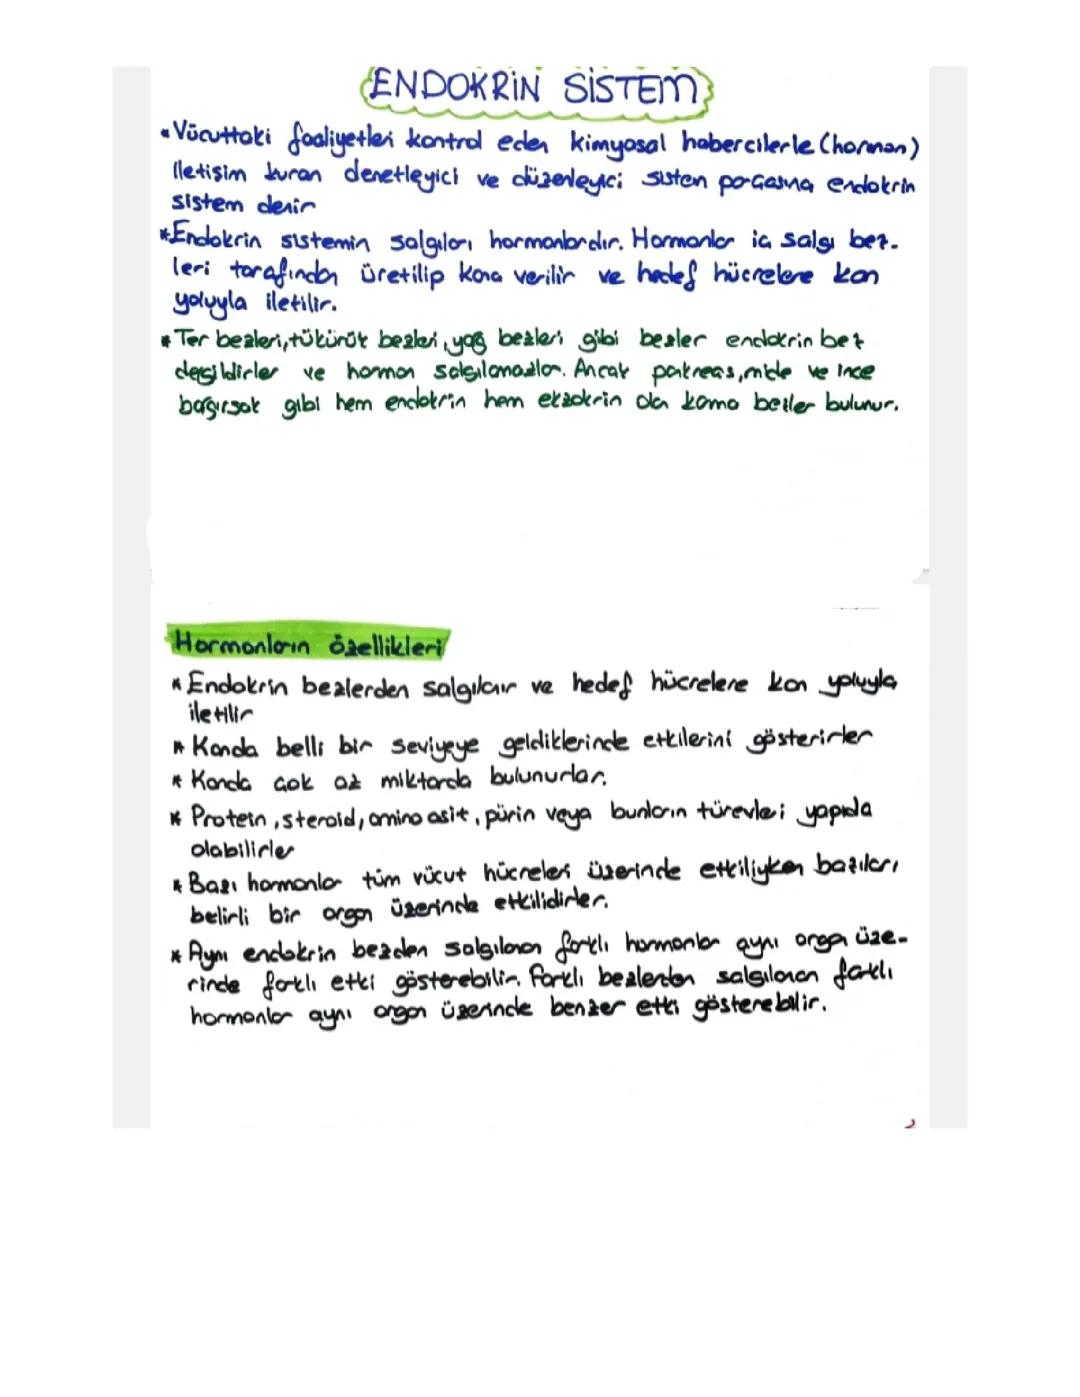 ENDOKRİN SİSTEM
* Vücuttaki faaliyetleri kontrol eden kimyasal habercilerle (hormon)
iletişim kuran denetleyici ve düzenleyici sistem parçasına endokrin
sistem denir
* Endokrin sistemin salgıları hormonlardır. Hormonlar iç salgı bez-
leri tarafından üretilip kana verilir ve hedef hücrelere kan
yoluyla iletilir.
* Ter bezleri, tükürük bezleri, yağ bezleri gibi bezler endokrin bez
değildirler ve hormon salgılamazlar. Ancak pankreas, mide ve ince
bağırsak gibi hem endokrin hem ekzokrin olan karma bezler bulunur.
Hormonların özellikleri
* Endokrin bezlerden salgılanır ve hedef hücrelere kan yoluyla
iletilir
* Kanda belli bir seviyeye geldiklerinde etkilerini gösterirler
* Kanda çok az miktarda bulunurlar.
* Protein, steroid, amino asit, pürin veya bunların türevleri yapıda
olabilirler
* Bazı hormonlar tüm vücut hücreleri üzerinde etkiliyken bazıları
belirli bir organ üzerinde etkilidirler.
* Aynı endokrin bezden salgılanan farklı hormonlar aynı organ üze-
rinde farklı etki gösterebilir. Farklı bezlerden salgılanan farklı
hormonlar aynı organ üzerinde benzer etki gösterebilir.